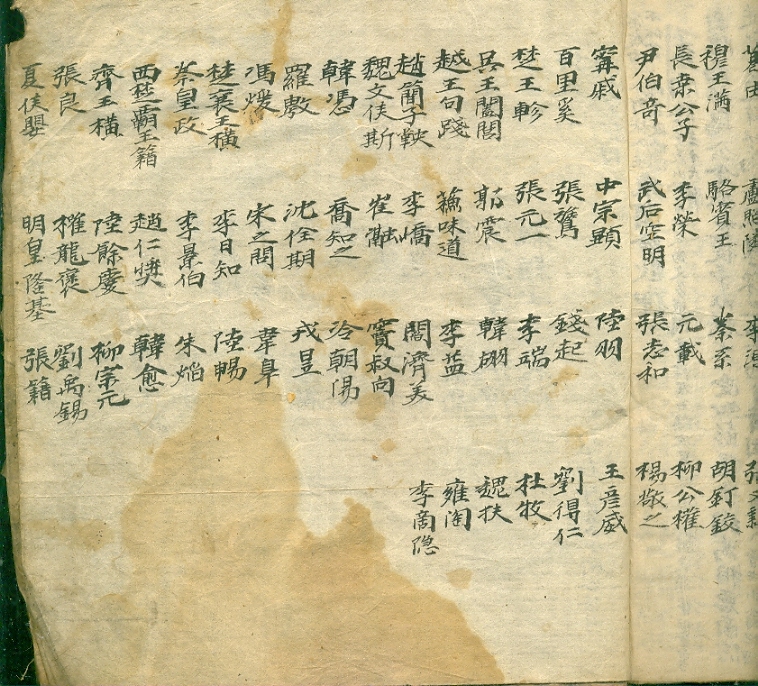 穆王滿
長桑公子
尹伯奇
甯戚
百里奚
楚王軫
吳王闔閭
越王句踐
趙簡子鞅
魏文侯斯
韓憑
羅敷
馮煖
秦皇政
楚襄王橫
西楚霸王籍
齊王橫
張良
夏侯嬰
盧照隣
駱賓王
李榮
武后空明
中宗顯
張鷟
張元一
郭震
蘇味道
李嶠
崔融
喬知之
沈佺期
宋之問
李日知
李景伯
趙仁獎
陸餘慶
權龍褒
明皇隆基
秦系
元載
張志和
陸羽
錢起
李端
韓翃
李益
閻濟美
竇叔向
冷朝陽
戎昱
韋皐
陸暢
朱滔
韓愈
柳宗元
劉禹錫
張籍
張又新
胡釘鉸
柳公權
楊敬之
王彥威
劉得仁
杜牧
魏扶
雍陶
李商隐